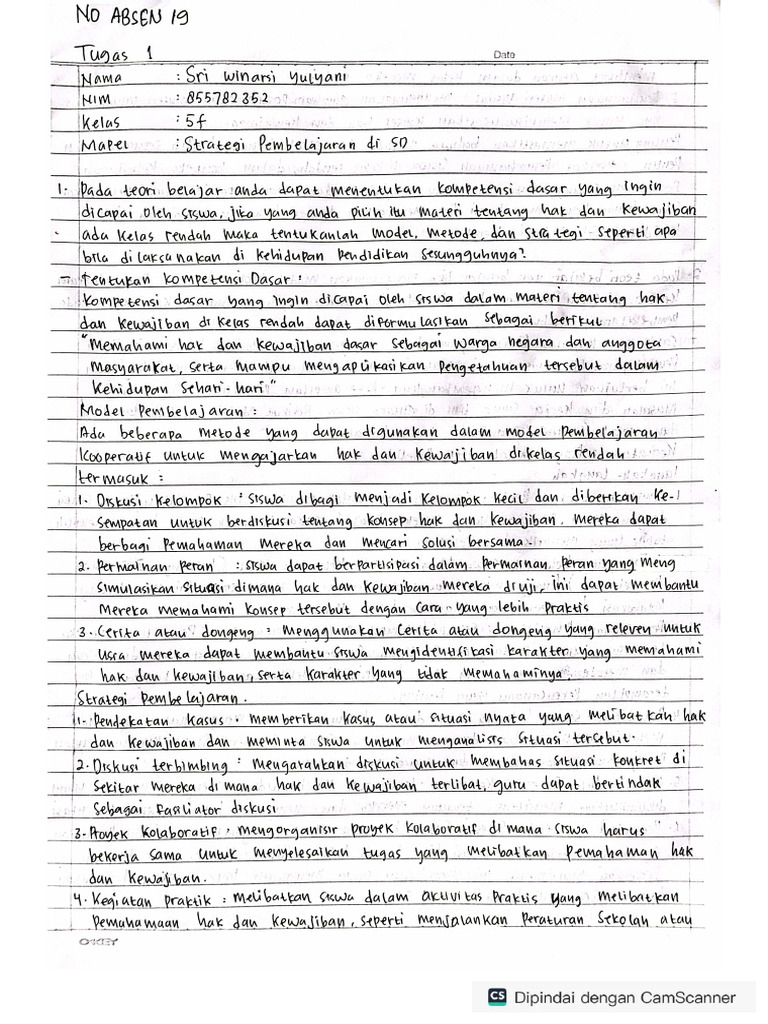 NO ABSEN 19
Tugas 1
Date
Nama : Sri Winarsi Yulyani
NIM : 855782352
Kelas : 5f
Mapel : Strategi Pembelajaran di SD
1. Pada teori belajar anda dapat menentukan kompetensi dasar yang ingin
dicapai oleh siswa, jika yang anda pilih itu materi tentang hak dan kewajiban
ada kelas rendah maka tentukanlah model, metode, dan strategi seperti apa
bila dilaksanakan di kehidupan pendidikan sesungguhnya?
- Tentukan kompetensi Dasar :
Kompetensi dasar yang ingin dicapai oleh siswa dalam materi tentang hak
dan kewajiban di kelas rendah dapat diformulasikan sebagai berikut
"Memahami hak dan kewajiban dasar sebagai warga negara dan anggota
Masyarakat, serta mampu mengaplikasikan pengetahuan tersebut dalam
kehidupan sehari-hari"
Model Pembelajaran :
Ada beberapa metode yang dapat digunakan dalam model pembelajaran
kooperatif untuk mengajarkan hak dan kewajiban di kelas rendah
termasuk :
1. Diskusi kelompok : siswa dibagi menjadi kelompok kecil dan diberikan ke-
sempatan untuk berdiskusi tentang konsep hak dan kewajiban. Mereka dapat
berbagi pemahaman mereka dan mencari solusi bersama.
2. Permainan peran : siswa dapat berpartisipasi dalam permainan peran yang meng
simulasikan situasi dimana hak dan kewajiban mereka diuji, ini dapat membantu
Mereka memahami konsep tersebut dengan cara yang lebih praktis
3. Cerita atau dongeng : menggunakan cerita atau dongeng yang releven untuk
usia mereka dapat membantu siswa mengidentifikasi karakter yang memahami
hak dan kewajiban, serta karakter yang tidak memahaminya
Strategi Pembelajaran.
1. Pendekatan kasus : memberikan kasus atau situasi nyata yang melibatkan hak
dan kewajiban dan meminta siswa untuk menganalisis situasi tersebut.
2. Diskusi terbimbing : mengarahkan diskusi untuk membahas situasi konkret di
sekitar mereka di mana hak dan kewajiban terlibat, guru dapat bertindak
sebagai fasiliator diskusi
3. Proyek kolaboratif : mengorganisir proyek kolaboratif di mana siswa harus
bekerja sama untuk menyelesaikan tugas yang melibatkan pemahaman hak
dan kewajiban.
4. Kegiatan praktik : melibatkan siswa dalam aktivitas praktis yang melibatkan
pemahamaan hak dan kewajiban, seperti menjalankan peraturan sekolah atau
CS Dipindai dengan CamScanner